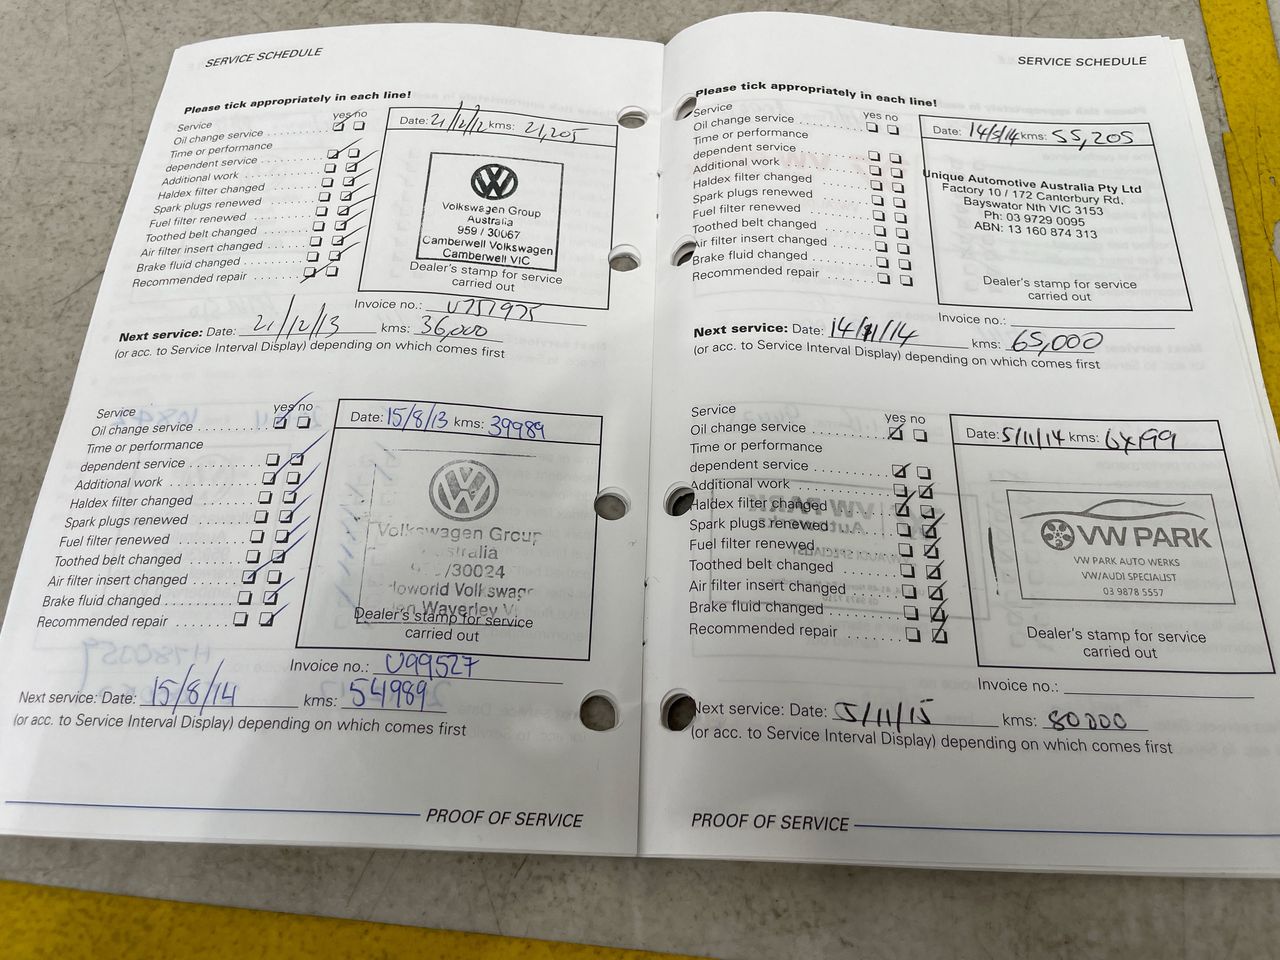 SERVICE SCHEDULE
Please tick appropriately in each line!
yes no
Service
Oil change service
Time or performance
dependent service
Additional work
Haldex filter changed
Spark plugs renewed
Fuel filter renewed
Toothed belt changed
Air filter insert changed
Brake fluid changed
Recommended repair
Date: 21/12/12 kms: 21,205
Volkswagen Group
Australia
959 / 30067
Camberwell Volkswagen
Camberwell VIC
Dealer's stamp for service
carried out
Invoice no.: U757975
Next service: Date: 21/12/13 kms: 36,000
(or acc. to Service Interval Display) depending on which comes first
Service
yes no
Oil change service
Time or performance
dependent service
Additional work
Haldex filter changed
Spark plugs renewed
Fuel filter renewed
Toothed belt changed
Air filter insert changed
Brake fluid changed
Recommended repair
Date: 15/8/13 kms: 39989
Volkswagen Group
/30024
Waverley
Dealer's stamp for service
carried out
Invoice no.: U99527
Next service: Date: 15/8/14 kms: 54989
(or acc. to Service Interval Display) depending on which comes first
PROOF OF SERVICE
SERVICE SCHEDULE
Please tick appropriately in each line!
Service
yes no
Oil change service
Time or performance
dependent service
Additional work
Haldex filter changed
Spark plugs renewed
Fuel filter renewed
Toothed belt changed
Air filter insert changed
Brake fluid changed
Recommended repair
Date: 14/5/14 kms: 55,205
Unique Automotive Australia Pty Ltd
Factory 10 / 172 Canterbury Rd.
Bayswator Nth VIC 3153
Ph: 03 9729 0095
ABN: 13 160 874 313
Dealer's stamp for service
carried out
Invoice no.:
Next service: Date: 14/11/14 kms: 65,000
(or acc. to Service Interval Display) depending on which comes first
Service
yes no
Oil change service
Time or performance
dependent service
Additional work
Haldex filter changed
Spark plugs renewed
Fuel filter renewed
Toothed belt changed
Air filter insert changed
Brake fluid changed
Recommended repair
Date: 5/11/14 kms:
VW PARK
VW PARK AUTO WERKS
VW/AUDI SPECIALIST
03 9878 5557
Dealer's stamp for service
carried out
Invoice no.:
Next service: Date: 5/11/15 kms: 80000
(or acc. to Service Interval Display) depending on which comes first
PROOF OF SERVICE